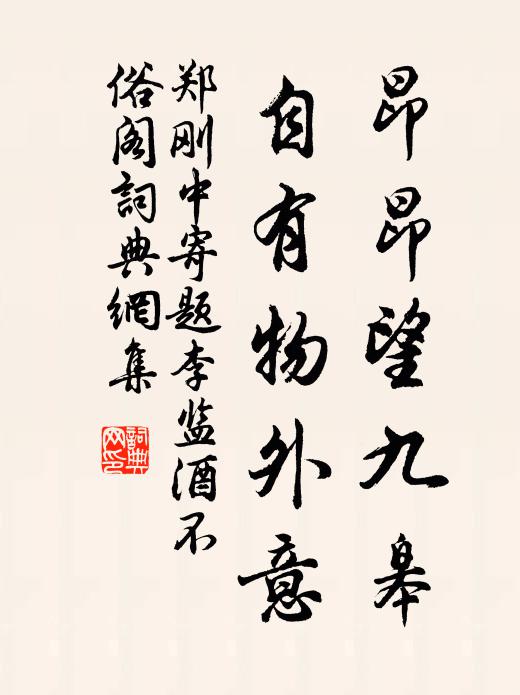 昂昂望九皋
自有物外意
郑刚中寄题李监酒不
俗阁詞典網集
詞典
网印